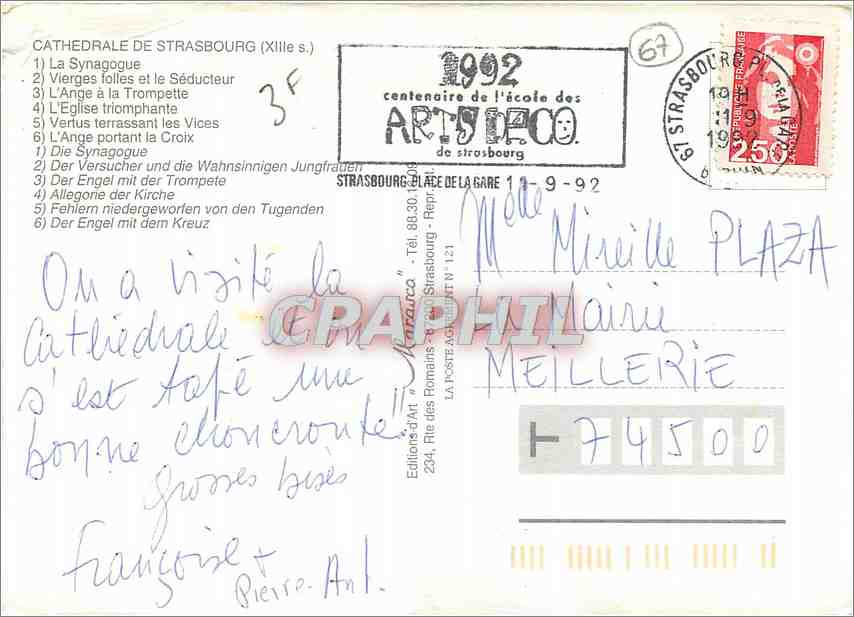 CATHEDRALE DE STRASBOURG (XIIIe s.)
1) La Synagogue
2) Vierges folles et le Séducteur
3) L'Ange à la Trompette
4) L'Eglise triomphante
5) Vertus terrassant les Vices
6) L'Ange portant la Croix
1) Die Synagogue
2) Der Versucher und die Wahnsinnigen Jungfrauen
3) Der Engel mit der Trompete
4) Allegorie der Kirche
5) Fehlern niedergeworfen von den Tugenden
6) Der Engel mit dem Kreuz
3F
1992
centenaire de l'école des
ARTS DECO.
de strasbourg
STRASBOURG PLACE DE LA GARE 11-9-92
67
67 STRASBOURG PL. DE LA GARE
19H
11-9
1992
BAS RHIN
REPUBLIQUE FRANÇAISE
2,50
LA POSTE
On a visité la
Cathédrale et on
s'est tapé une
bonne choucroute!!
Grosses bises
Françoise +
Pierre-Ant.
Editions d'Art "Marasca"
234, Rte des Romains - Strasbourg - Repr. int.
LA POSTE AGREMENT N° 121
Melle Mireille PLAZA
Mairie
MEILLERIE
T 74500
CPAPHIL